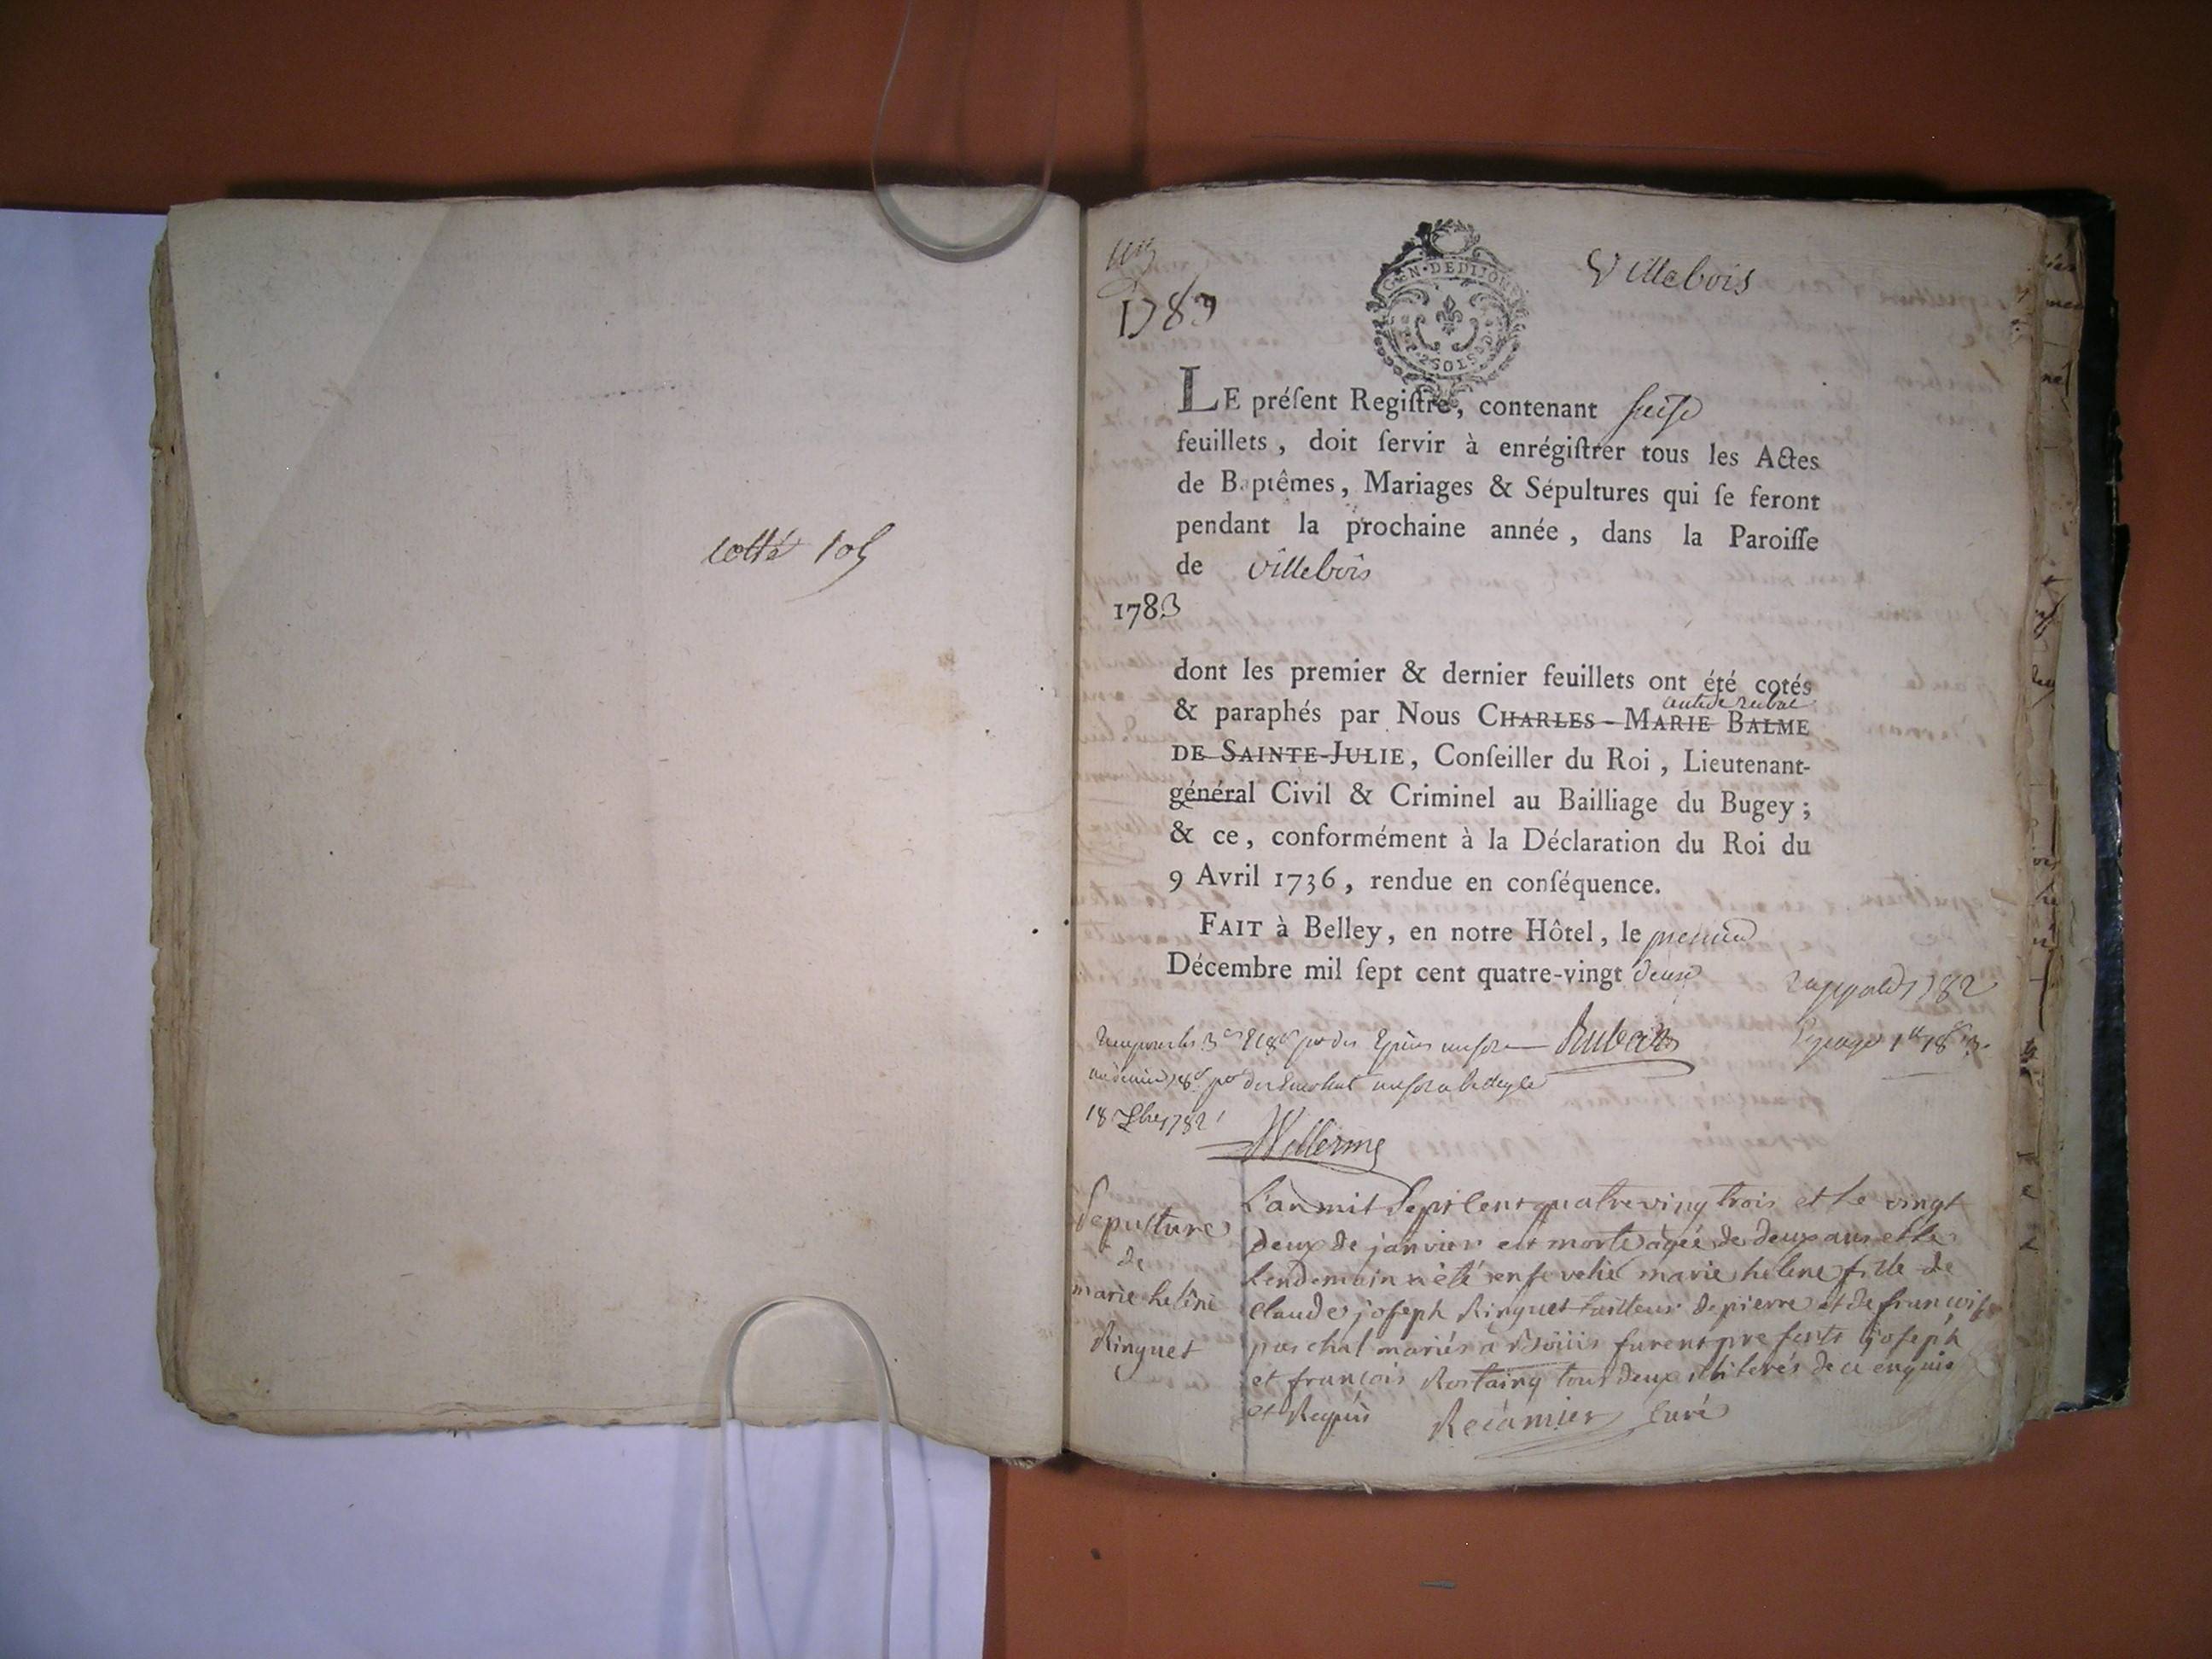 cotté 105
1783
GEN·DEDIJON
Villebois
LE préſent Regiſtre, contenant seise
feuillets, doit ſervir à enrégiſtrer tous les Actes
de Baptêmes, Mariages & Sépultures qui ſe feront
pendant la prochaine année, dans la Paroiſſe
de villebois
1783
dont les premier & dernier feuillets ont été cotés
& paraphés par Nous CHARLES-MARIE BALME
DE SAINTE-JULIE, Conſeiller du Roi, Lieutenant-
général Civil & Criminel au Bailliage du Bugey;
& ce, conformément à la Déclaration du Roi du
9 Avril 1736, rendue en conſéquence.
FAIT à Belley, en notre Hôtel, le premier
Décembre mil ſept cent quatre-vingt deux
1782
18 Xbre 1782
Sepulture
de
marie heléne
Ringuet
L'an mil Sept Cent quatre ving trois et le vingt
deux de janvier est morte agée de deux ans et le
Lendemain a été ensevelie marie helene fille de
Claude joseph Ringuet tailleur de pierre et de françoise
paschal mariés à furent presents joseph
et françois Rostaing tous deux illiterés de ce enquis
et Requis Récamier Curé